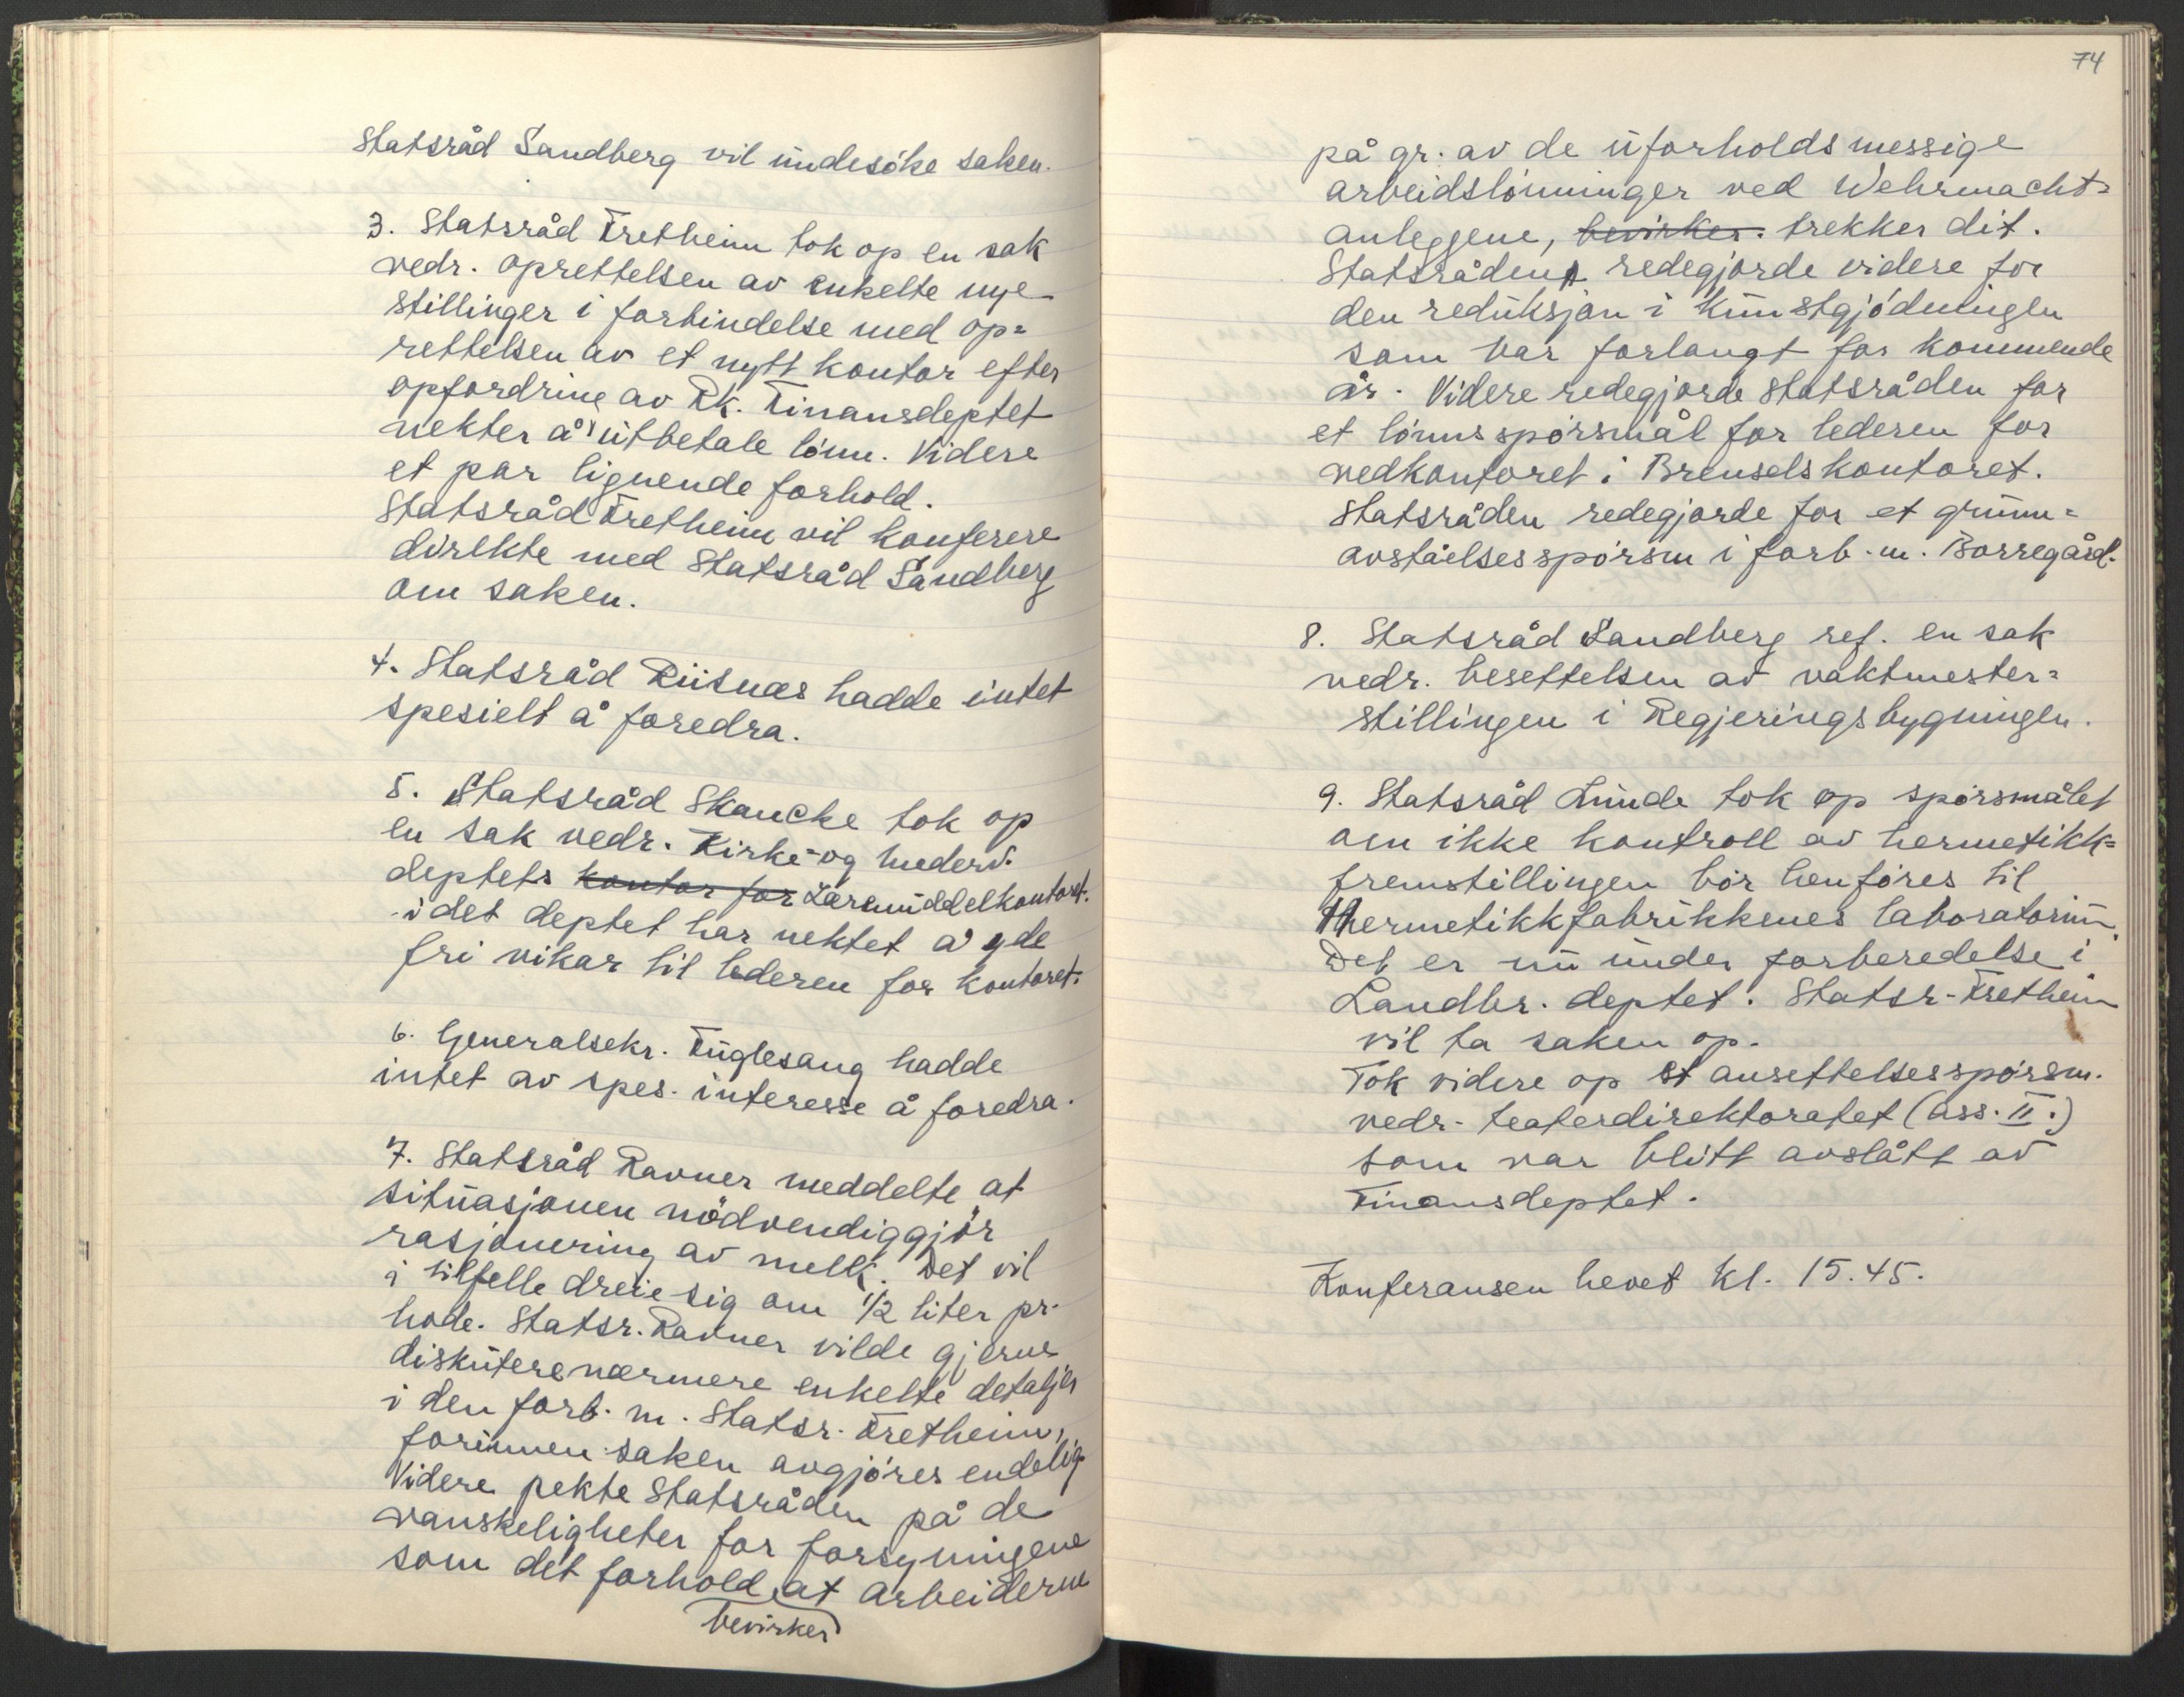 Statsråd Sandberg vil undesöke saken.
3. Statsråd Fretheim tok op en sak
vedr. oprettelsen av enkelte nye
stillinger i forbindelse med op=
rettelsen av et nytt kontor efter
opfordring av Rk. Finansdeptet
nekter å utbetale lönn. Videre
et par lignende forhold.
Statsråd Fretheim vil konferere
direkte med Statsråd Sandberg
om saken.
4. Statsråd Riisnæs hadde intet
spesielt å foredra.
5. Statsråd Skancke tok op
en sak vedr. Kirke- og Underv.
deptets kontor for Læremiddelkontoret.
i det deptet har nektet å yde
fri vikar til lederen for kontoret.
6. Generalsekr. Fuglesang hadde
intet av spes. interesse å foredra.
7. Statsråd Ravner meddelte at
situasjonen nödvendiggjör
rasjonering av melk. Det vil
i tilfelle dreie sig om 1/2 liter pr.
hode. Statsr. Ravner vilde gjerne
diskutere nærmere enkelte detaljer
i den forb. m. Statsr. Fretheim,
forinnen saken avgjöres endelig.
Videre pekte Statsråden på de
vanskeligheter for forsyningene
som det forhold at arbeiderne
bevirker
74
på gr. av de uforholdsmessige
arbeidslönninger ved Wehrmacht=
anleggene, bevirker. trekker dit.
Statsråden redegjorde videre for
den reduksjon i kunstgjödningen
som var forlangt for kommende
år. Videre redegjorde Statsråden for
et lönnsspörsmål for lederen for
vedkontoret i Brenselskontoret.
Statsråden redegjorde for et grunn=
avståelsesspörsm i forb. m. Borregård.
8. Statsråd Sandberg ref. en sak
vedr. besettelsen av vaktmester=
stillingen i Regjeringsbygningen.
9. Statsråd Lunde tok op spörsmålet
om ikke kontroll av hermetikk=
fremstillingen bör henföres til
Hermetikkfabrikkenes laboratorium.
Det er nu under forberedelse i
Landbr. deptet. Statsr. Fretheim
vil ta saken op.
Tok videre op et ansettelsesspörsm.
vedr. teaterdirektoratet (ass. II.)
som var blitt avslått av
Finansdeptet.
Konferansen hevet kl. 15.45.